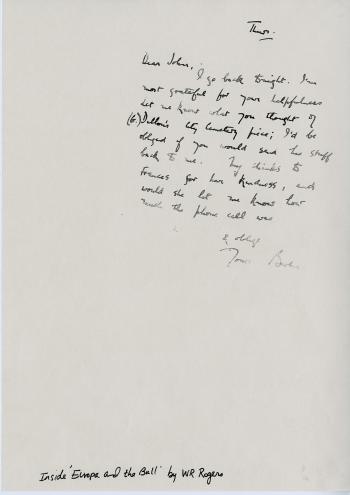 Thurs.
Dear John,
I go back tonight. I'm
most grateful for your helpfulness
Let me know what you thought of
(G.) Dillon's City Cemetery piece; I'd be
obliged if you would send his stuff
back to me. My thanks to
Frances for her kindness, and
would she let me know how
much the phone call was
& oblige
Yours
Inside 'Europe and the Bull' by WR Rogers